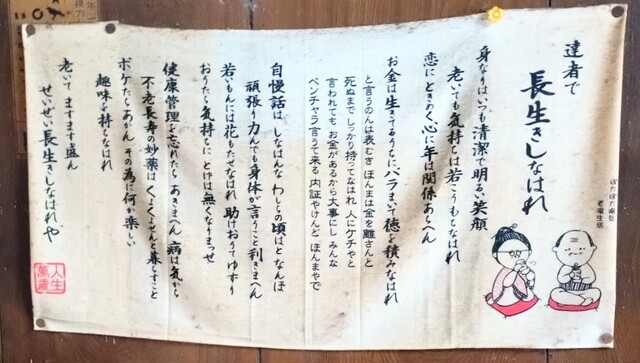 達者で
長生きしなはれ
ぽかぽか南包
老暖生活
身なりはいつも清潔で明るい笑顔
老いても気持ちは若こうもちなはれ
恋にときめく心に年は関係あらへん
お金は生きてるうちにバラまいて徳を積みなはれ
と言うのんは表むき ほんまは金を離さんと
死ぬまでしっかり持ってなはれ 人にケチやと
言われても お金があるから大事にし みんな
ベンチャラ言うて来る 内証やけんど ほんまやで
自慢話はしなはんな わしらの頃はとなんぼ
頑張り力んでも身体が言うこと利きまへん
若いもんには花もたせなはれ 助けおうてゆずり
おうたら気持ちにとげは無くなりまっせ
健康管理を忘れたらあきまへん 病は気から
不老長寿の妙薬はくよくよせんと暮らすこと
ボケたらあかん その為に何か楽しい
趣味を持ちなはれ
老いてますます盛ん
せいぜい長生きしなはれや
人生
萬歳